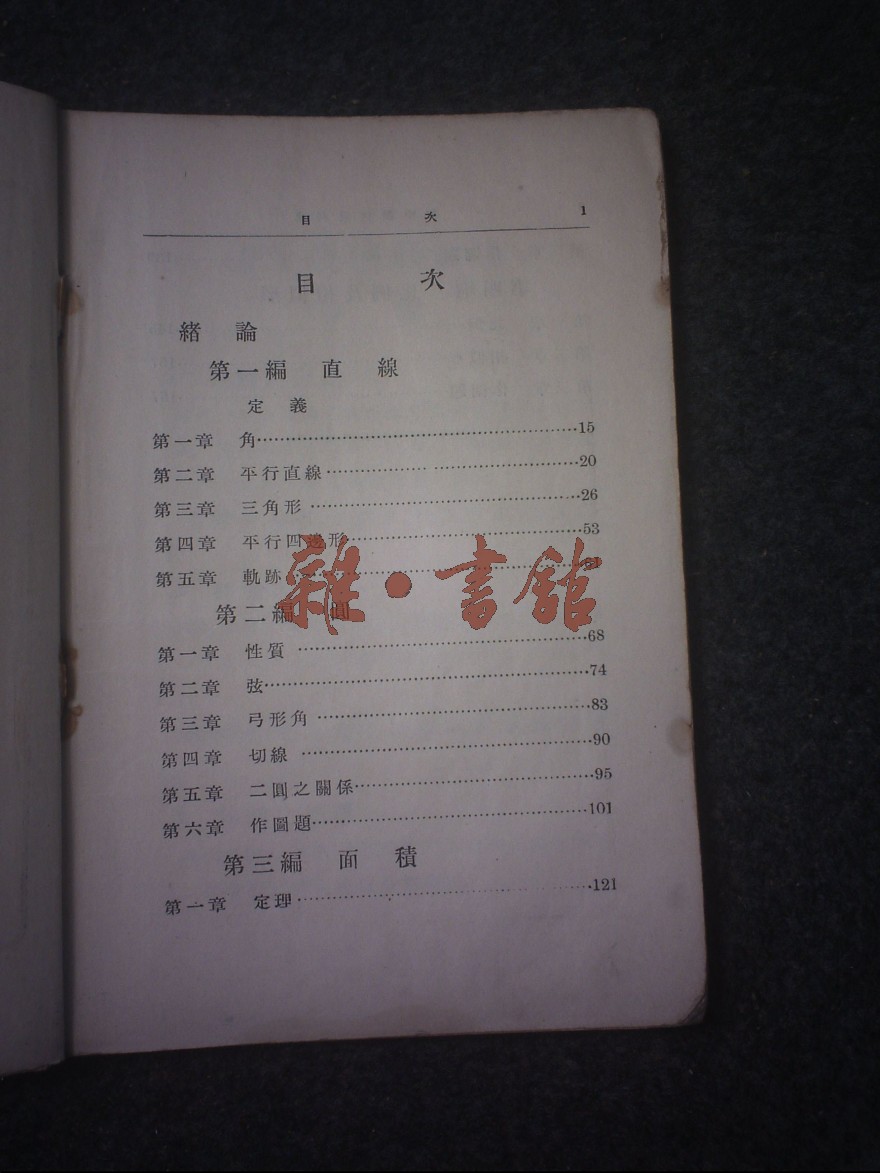 目 次 1
目 次
緒 論
第一編 直 線
定 義
第一章 角 15
第二章 平行直線 20
第三章 三角形 26
第四章 平行四邊形 53
第五章 軌跡
第二編 圓
第一章 性質 68
第二章 弦 74
第三章 弓形角 83
第四章 切線 90
第五章 二圓之關係 95
第六章 作圖題 101
第三編 面 積
第一章 定理 121
雜·書館